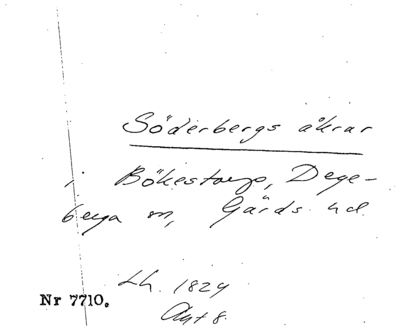 Söderbergs åkrar
i Bökestorp, Dege-
berga sn, Gärds hd.
Lh. 1824
Akt 8.
Nr 7710.